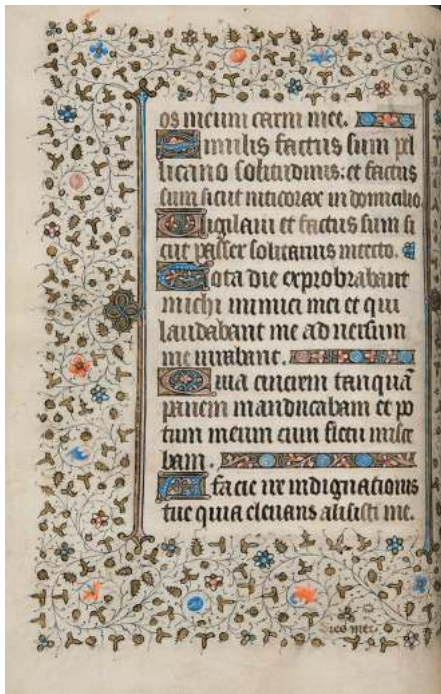 os meum carni mee.
Similis factus sum pel
licano solitudinis: et factus
sum sicut niticorax in domicilio
Uigilaui et factus sum si
cut passer solitarius in tecto.
Tota die exprobrabant
michi inimici mei et qui
laudabant me aduersum
me iurabant.
Quia cinerem tanquã
panem manducabam et po
tum meum cum fletu misce
bam.
A facie ire indignationis
tue quia eleuans alisisti me.
mei.